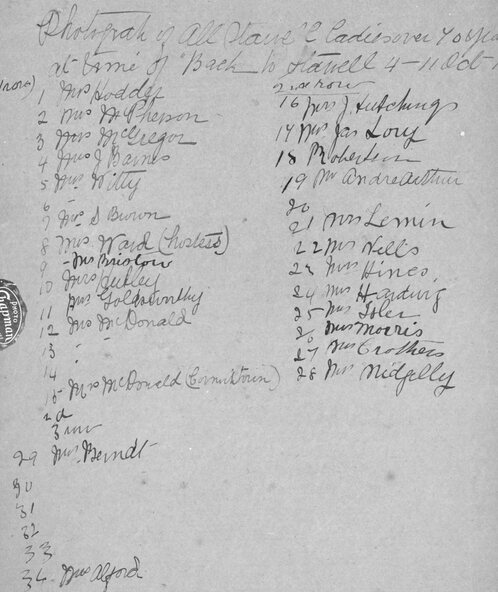 Photograph of All Stawell Ladies over 70 years
at time of "Back to Stawell 4-11 Oct 1
row)
1 Mrs Hoddy
2 Mrs McPherson
3 Mrs McGregor
4 Mrs J Barnes
5 Mrs Witty
6 -
7 Mrs S Brown
8 Mrs Ward (hostess)
9 - Mrs Bristow
10 Mrs
11 Mrs Goldsworthy
12 Mrs McDonald
13 -
14 -
15 - Mrs McDonald (
2d
3 row
29 Mrs Berndt
30
31
32
33
34 - Mrs Alford
2nd row
16 Mrs J. Hutchings
17 Mrs Jas Lory
18 Robertson
19 Mr Andrearthur
20
21 Mrs Lemin
22 Mrs Wells
23 Mrs Hines
24 Mrs Hardwig
25 Mrs Isler
26 Mrs Morris
27 Mrs Crothers
28 Mrs Midgelly
PHOTO
Capman